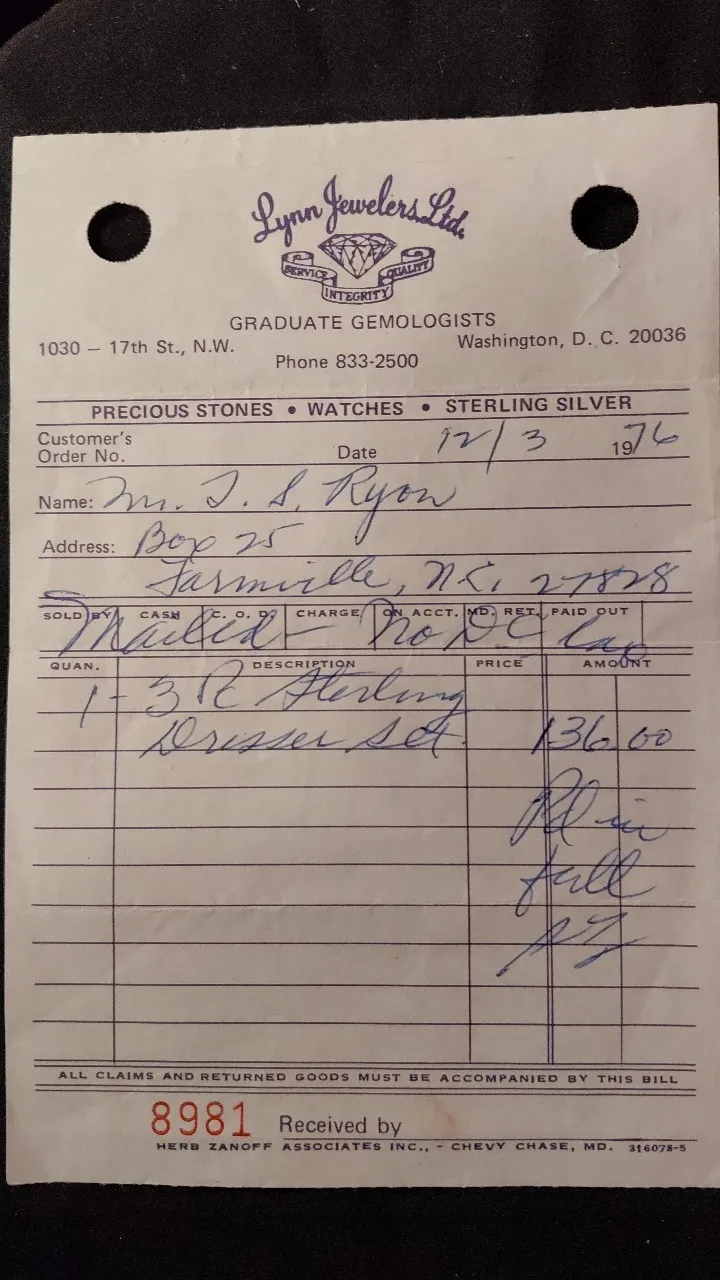 Lynn Jewelers, Ltd.
SERVICE INTEGRITY QUALITY
GRADUATE GEMOLOGISTS
1030 – 17th St., N.W. Washington, D. C. 20036
Phone 833-2500
PRECIOUS STONES • WATCHES • STERLING SILVER
Customer's
Order No. Date 12/3 1976
Name: Mr. T. S. Ryon
Address: Box 25
Farmville, N.C. 27828
SOLD BY CASH C. O. D. CHARGE ON ACCT. MD. RET. PAID OUT
Mailed - No D.C.
QUAN. DESCRIPTION PRICE AMOUNT
1 - 3 Pc Sterling
Dresser Set 136.00
Pd in
full
ALL CLAIMS AND RETURNED GOODS MUST BE ACCOMPANIED BY THIS BILL
8981 Received by
HERB ZANOFF ASSOCIATES INC., - CHEVY CHASE, MD. 316078-5